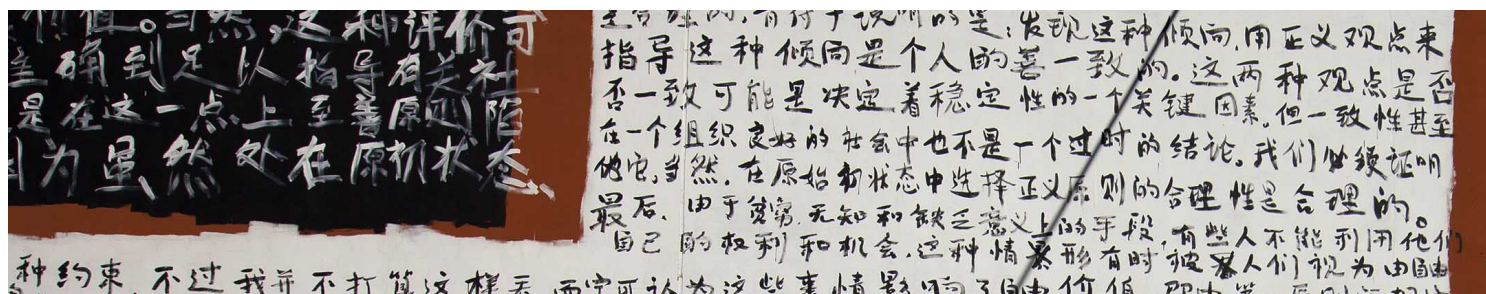 价值。当然,这种评价可
准确到足以指导有关社
是在这一点上至善原则陷
因为虽然处在原初状态、
是合理的,有待于说明的是:发现这种倾向,用正义观点来
指导这种倾向是个人的善一致的。这两种观点是否
否一致可能是决定着稳定性的一个关键因素。但一致性甚至
在一个组织良好的社会中也不是一个过时的结论。我们必须证明
他它。当然,在原始初状态中选择正义原则的合理性是合理的。
最后,由于贫穷、无知和缺乏意义上的手段,有些人不能利用他们
自己的权利和机会,这种情形有时被人们视为由自由
种约束,不过我并不打算这样看,而宁可认为这些事情影响了自由价值